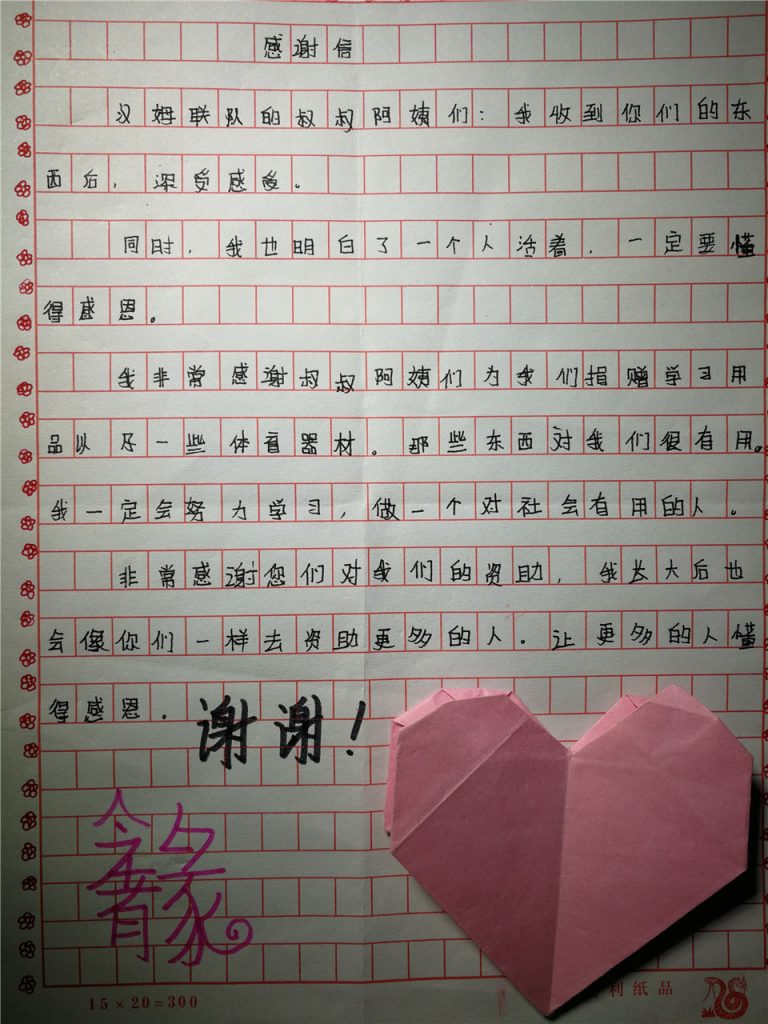 感谢信
汉姆联队的叔叔阿姨们：我收到你们的东
西后，深受感爱。
同时，我也明白了一个人活着，一定要懂
得感恩。
我非常感谢叔叔阿姨们为我们捐赠学习用
品以及一些体育器材。那些东西对我们很有用。
我一定会努力学习，做一个对社会有用的人。
非常感谢您们对我们的资助，我长大后也
会像你们一样去资助更多的人。让更多的人懂
得感恩。谢谢！
15×20=300
利纸品